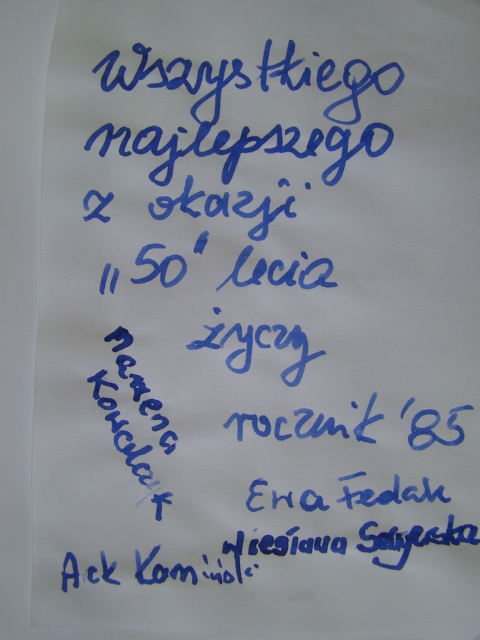 Wszystkiego
najlepszego
z okazji
„50" lecia
życzy
rocznik '85
Marzena
Kowalczyk
Ewa Fedak
Wiesława
Arek Kamiński